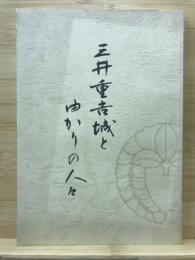 三井重吉城と
ゆかりの人々